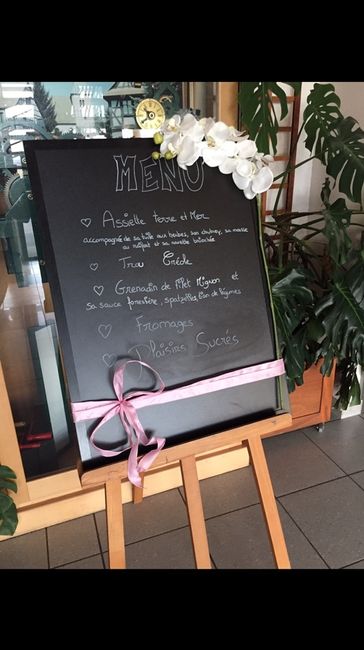 MENU
♡ Assiette Terre et Mer
accompagnée de sa tuile aux herbes, son chutney, sa
au et sa navette
♡ Trou Créole
♡ Grenadin de filet Mignon et
sa sauce forestière, spatzels, de légumes
♡ Fromages
♡ Plaisirs Sucrés